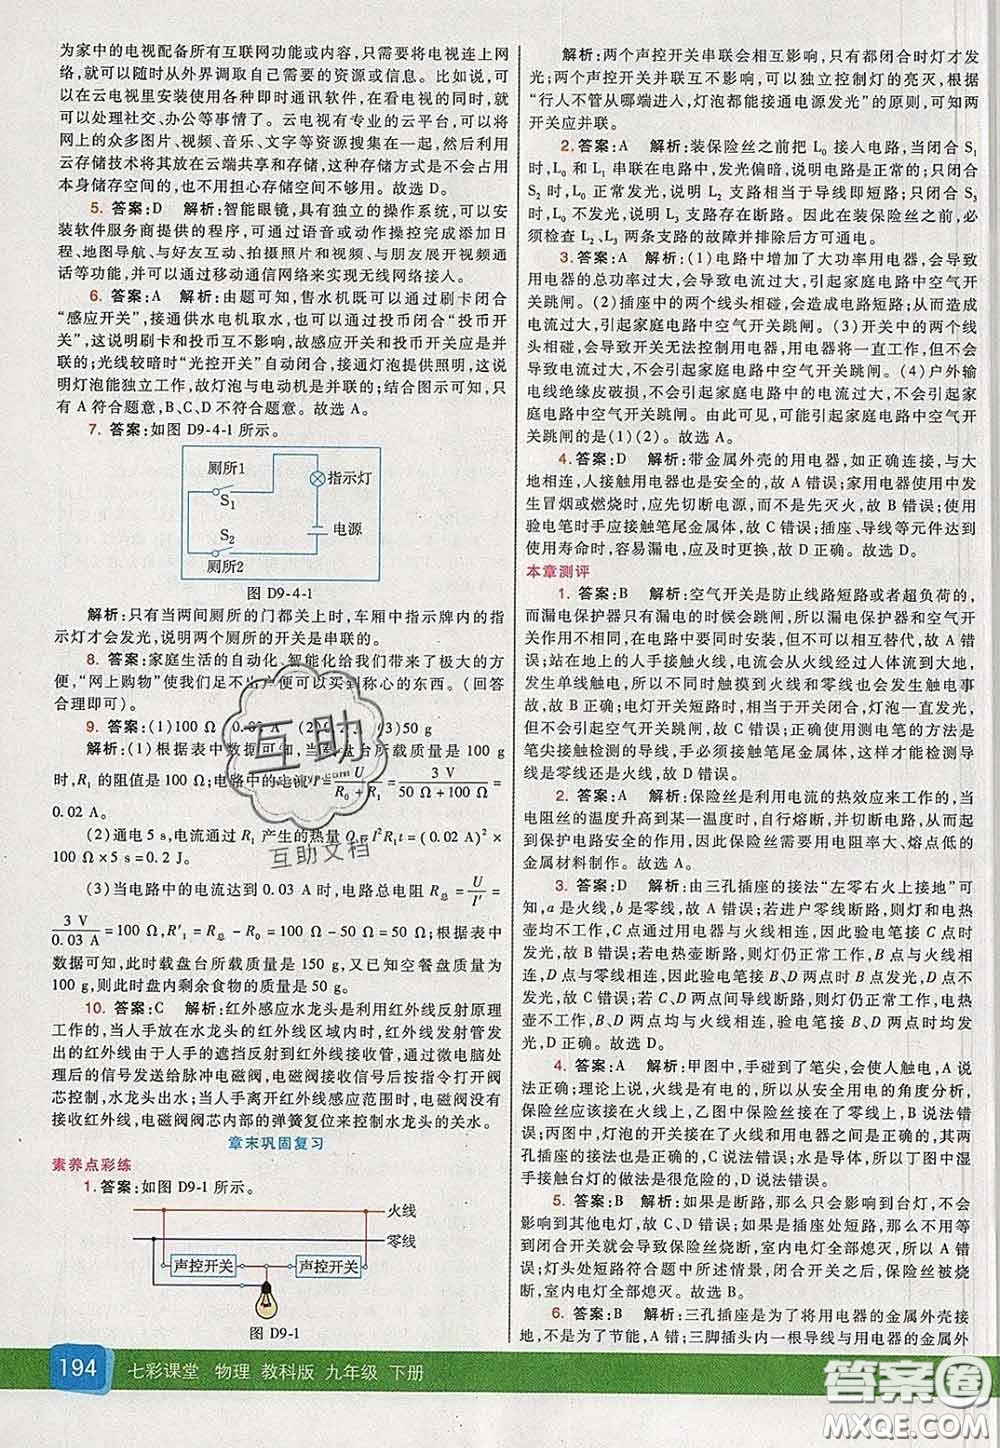 为家中的电视配备所有互联网功能或内容,只需要将电视连上网
络,就可以随时从外界调取自己需要的资源或信息。比如说,可
以在云电视里安装使用各种即时通讯软件,在看电视的同时,就
可以处理社交、办公等事情。云电视有专业的云平台,可以实现
网上的众多图片、视频、音乐、文字等资源集合在一起,然后利用
云存储技术将其放在云端共享和存储,这种存储方式是不会占用
本身储存空间的,也不用担心存储空间的使用量。故选 D。
5. 答案:D 解析:智能眼镜,具有独立的操作系统,可以安
装软件服务商提供的程序,可以通过语音或动作操控完成添加日
程、地图导航、与好友互动、拍摄照片和视频、与朋友展开视频通
话等功能,并可以通过移动通信网络来实现无线网络接入。
6. 答案:A 解析:由题可知,售水机既可以通过刷卡闭合
“感应开关”,接通供水电机取水,也可以通过投币闭合“投币开
关”,这说明刷卡和投币互不影响,故感应开关和投币开关应是并
联的;光线较暗时“光控开关”自动闭合,接通灯泡提供照明,这说
明灯泡能独立工作,故灯泡与电动机是并联的;结合图示可知,只
有 A 符合题意,B、C、D 不符合题意。故选 A。
7. 答案:如图 D9-4-1 所示。
厕所1
指示灯
S₁
电源
S₂
厕所2
图 D9-4-1
解析:只有当两间厕所的门都关上时,车厢中指示牌内的指
示灯才会发光,说明两个厕所的开关是串联的。
8. 答案:家庭生活的自动化、智能化给我们带来了极大的方
便,“网上购物”使我们足不出户便可以买到称心的东西。(回答
合理即可)。
9. 答案:(1)100 Ω (3)50 g
解析:(1)根据表中数据可知,当载盘台所载质量是 100 g
时,R₁ 的阻值是 100 Ω;电路中的电流 I = U/(R₀+R₁) = 3 V/(50 Ω+100 Ω) =
0.02 A。
(2)通电 5 s,电流通过 R₁ 产生的热量 Q=I²R₁t=(0.02 A)²×
100 Ω×5 s=0.2 J。
(3)当电路中的电流达到 0.03 A 时,电路总电阻 R总 = U/I′ =
3 V/0.03 A = 100 Ω,R′₁ = R总 − R₀ = 100 Ω − 50 Ω = 50 Ω;根据表中
数据可知,此时载盘台所载质量是 150 g,又已知空餐盘质量为
100 g,则此时盘内剩余食物的质量是 50 g。
10. 答案:C 解析:红外感应水龙头是利用红外线反射原理
工作的,当人手放在水龙头的红外线区域内时,红外线发射管发
出的红外线由于人手的遮挡反射到红外线接收管,通过微电脑处
理后的信号发送给脉冲电磁阀,电磁阀接收信号后按指令打开阀
芯控制,水龙头出水;当人手离开红外线感应范围时,电磁阀没有
接收信号,电磁阀阀芯内部的弹簧复位来控制水龙头的关水。
章末巩固复习
素养点彩练
1. 答案:如图 D9-1 所示。
火线
零线
声控开关 声控开关
图 D9-1
解析:两个声控开关串联会相互影响,只有都闭合时灯才发
光;两个声控开关并联互不影响,可以独立控制灯的亮灭,根据
“行人不管从哪端进入,灯泡都能接通电源发光”的原则,可知两
开关应并联。
2. 答案:A 解析:装保险丝之前把 L₀ 接入电路,当闭合 S₁
时,L₀ 和 L₁ 串联在电路中,发光偏暗,说明电路是正常的;只闭合
S₂ 时,L₀ 正常发光,说明 L₂ 支路相当于导线即短路;只闭合 S₃
时,L₀ 不发光,说明 L₃ 支路存在断路。因此在装保险丝之前,必
须检查 L₂、L₃ 两条支路的故障并排除后方可通电。
3. 答案:A 解析:(1)电路中增加了大功率用电器,会导致
电路的总功率过大,会导致电流过大,引起家庭电路中空气开关
跳闸。(2)插座中的两个线头相碰,会造成电路短路;从而造成
电流过大,引起家庭电路中空气开关跳闸。(3)开关中的两个线
头相碰,会导致开关无法控制用电器,用电器将一直工作,但不会
导致电流过大,不会引起家庭电路中空气开关跳闸。(4)户外输
电线绝缘皮破损,不会导致电流过大,不会引起家庭电路中空气
开关跳闸。由此可见,可能引起家庭电路中空气开
关跳闸的是(1)(2)。故选 A。
4. 答案:D 解析:带金属外壳的用电器,如正确连接,与大
地相连,人接触用电器是安全的,故 A 错误;家用电器使用中发
生冒烟或燃烧时,应先切断电源,而不是先灭火,故 B 错误;使用
验电笔时手应接触笔尾金属体,故 C 错误;插座、导线等元件达到
使用寿命时,容易漏电,应及时更换,故 D 正确。故选 D。
本章测评
1. 答案:B 解析:空气开关是防止线路短路或者超负荷的,
而漏电保护器只有漏电的时候会跳闸,所以漏电保护器和空气开
关所起作用不同,在电路中两者不可以相互替代,故 A 错
误;站在地上的人手接触火线,电流会从火线经过人体流到大地,
发生单线触电,所以不会同时接触到火线和零线也会触电事
故,故 B 正确;电灯开关短路时,灯泡一直发光,
不会引起空气开关跳闸,故 C 错误;正确使用测电笔的方法是
笔尖接触检测的导线,手必须接触笔尾金属体,这样才能检测导
线是零线还是火线,故 D 错误。
2. 答案:A 解析:保险丝是利用电流的热效应来工作的,当
电阻丝的温度升高到某一温度时,自行熔断,并切断电路,从而起
到保护电路安全的作用,因此保险丝需要用电阻率大、熔点低的
金属材料制作。故选 A。
3. 答案:D 解析:由三孔插座的接法“左零右火上接地”可
知,a 是火线,b 是零线,故 A 错误;若进户零线断路,则灯和电热
壶均不工作,C 点通过用电器与火线连接,故验电笔接 C 点时
发光,故 B 错误;若电热壶断路,则灯正常发光,D
点与火线断开,因此验电笔接 B、D 两点时,B 点发光,D 点不
发光,故 C 错误;若 C、D 两点间导线断路,则灯仍正常发光,电热
壶不工作,B、D 两点均与火线相连,验电笔分别接 B、D 两点均发
光,故 D 正确。故选 D。
4. 答案:A 解析:甲图中,手碰到了笔尖,会使人触电,A 说
法正确;理论上说,火线是有电的,所以从安全用电的角度分析,
保险丝应该接在火线上,乙图中保险丝接在零线上,故 B 说法错
误;丙图中,灯泡的开关接在了火线和用电器之间是正确的,其两
孔插座的接法也是正确的,C 说法错误;水是导体,所以丁图中湿
手接触台灯的做法是很危险的,D 说法错误。
5. 答案:B 解析:如果是断路,那么只会影响到台灯,不会
影响到其他电灯,故 C、D 错误;如果是插座处短路,那么不用等
到闭合开关就会导致保险丝烧断,室内电灯全部熄灭,所以 A 错
误;灯头处短路符合题中所述情景,闭合开关会使保险丝被烧断,
室内电灯全部熄灭。故选 B。
6. 答案:B 解析:三孔插座是为了将用电器的金属外壳接
地,不是为了美观,故 A 错误;三脚插头内一根导线与用电器的金属外
194 七彩课堂 物理 教科版 九年级 下册
互助
互助文档
答案圈
MXQE.COM